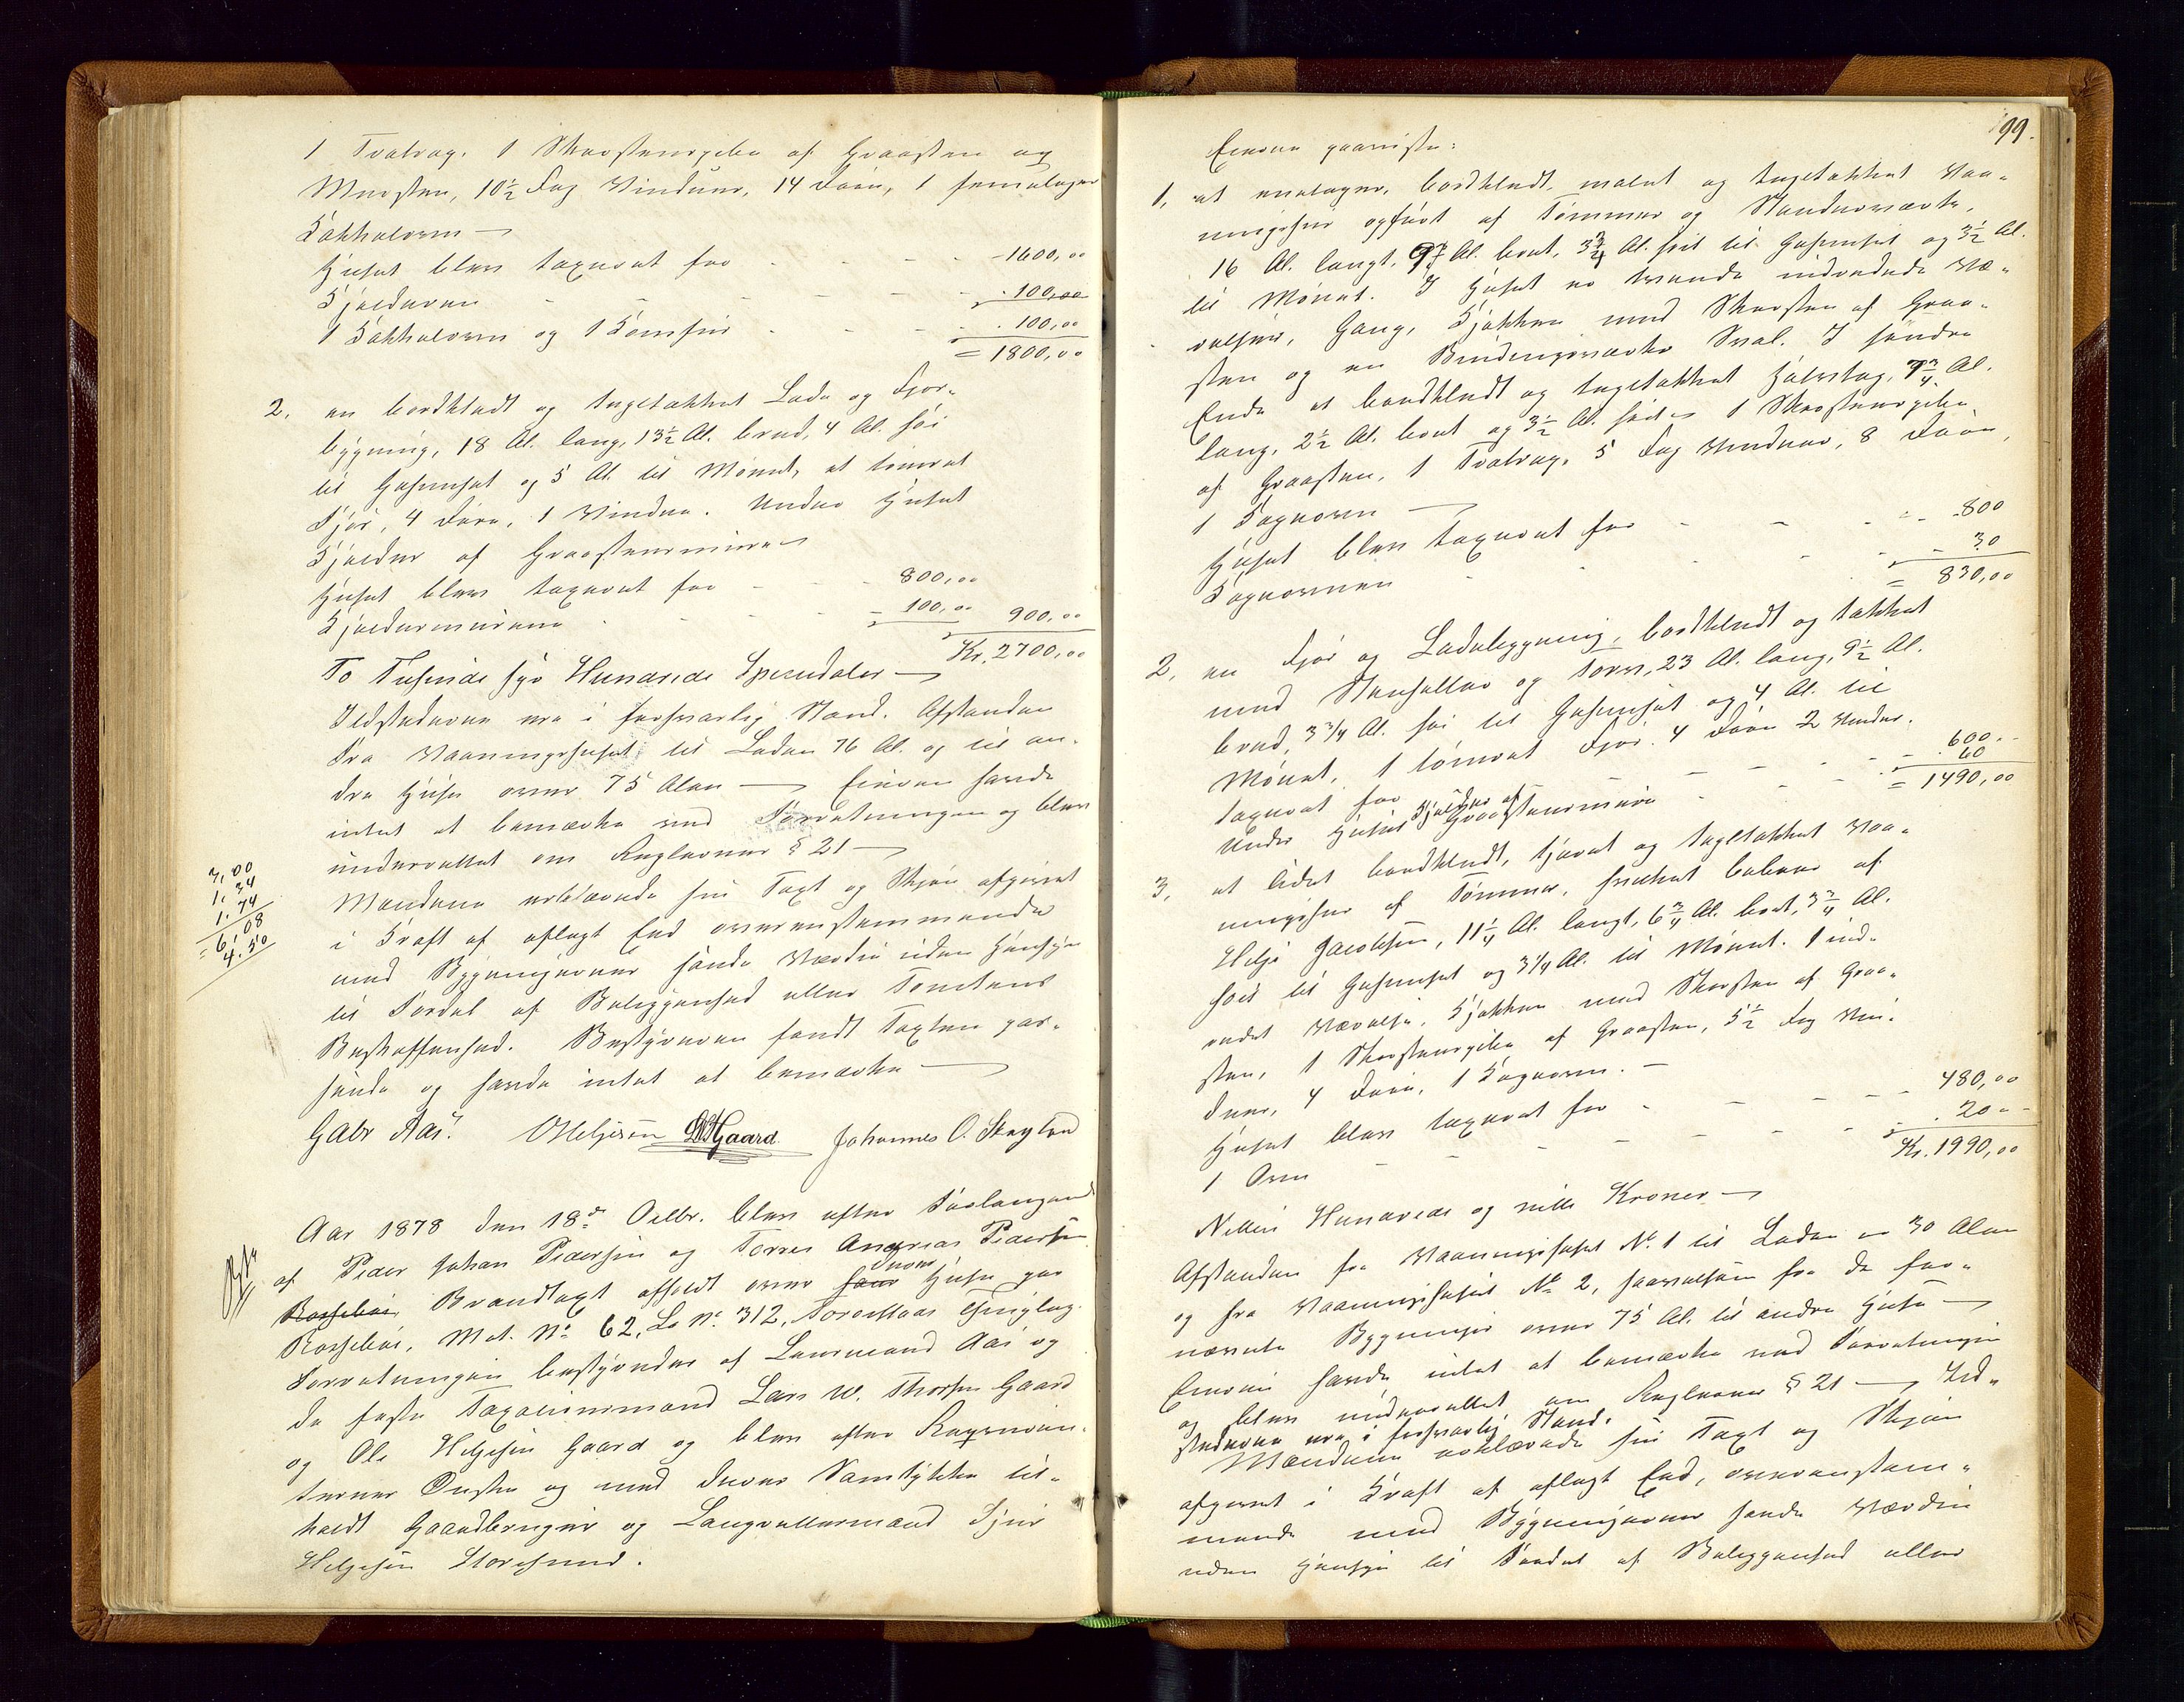 1 Tvalrag. 1 Skorstenspibe af Graasten og
Mursten, 10½ Fag Vinduer, 14 Døre, 1 femetager
Kakkelovn
Huset blev taxeret for - - - 1600,00
Kjelderen - - - - 100,00
1 Kakkelovn og 1 Komfur - - - 100,00
= 1800,00
2, en bordklædt og tagetækket Lade og Fjøs-
bygning, 18 Al. lang, 13½ Al. bred, 4 Al. høi
til Gesimset og 5 Al. til Mønet, et tømret
Fjøs, 4 Døre, 1 Vindue. Under Huset
Kjelder af Graastensmure
Huset blev taxeret for - - 800,00
Kjeldermurene - - - = 100,00 900,00
Kr. 2700,00
To Tusinde syv Hundrede Speciedaler
Ildstederne ere i forsvarlig Stand. Afstanden
fra Vaaningshuset til Laden 76 Al. og til an-
dre Huse over 75 Alen — Eieren havde
intet at bemærke ved Forretningen og blev
underrettet om Reglerne § 21 —
3,00
1,34
1,74
= 6,08
4.50
Mændene erklærede sin Taxt og Skjøn afgivet
i Kraft af aflagt Eed overensstemmende
med Bygningernes sande Værdie uden Hensyn
til Fordel af Beliggenhed eller Tomtens
Beskaffenhed. Bestyreren fandt Taxten pas-
sende og havde intet at bemærke —
Gabr Aas. OHelgesen LWTGaard Johannes O. Stegland
Aar 1878 den 18de Octbr. blev efter Forlangende
af Peder Johan Pedersen og Torres Andreas Pedersen
Rossebøe, Brandtaxt afholdt over deres Huse paa
Rossebøe, Mat. No 62, Lo No. 312, Torvestad Thinglag.
Forretningen bestyredes af Lensmand Aas og
de faste Taxationsmænd Lars W. Thorsen Gaard
og Ole Helgesen Gaard og blev efter Reqviren-
ternes Ønske og med deres Samtykke til-
kaldt Gaardbruger og Laugrettesmand Sjur
Helgesen Storesund.
199.
Eierne paaviste:
1, et enetages, bordklædt, malet og tagetækket Vaa-
ningshus opført af Tømmer og Stenderværk,
16 Al. langt, 9¾ Al. bredt, 3¾ Al. høit til Gesimset og 3½ Al.
til Mønet. I Huset er tvende indredede Væ-
relser, Gang, Kjøkken med Skorsten af Graa-
sten og en Bindingsværks Sval. I søndre
Ende et bordklædt og tagetækket Halvtag, 7¾ Al.
lang, 2½ Al. bredt og 3½ Al. høit 1 Skorstenspibe
af Graasten, 1 Tvalrag, 5 Fag Vinduer, 8 Døre,
1 Kogeovn
Huset blev taxeret for - - - 800
Kogeovnen - - - 30
= 830,00
2, en Fjøs og Ladebygning, bordklædt og tækket
med Stenheller og Torv, 23 Al. lang, 9½ Al.
bred, 3¾ Al. høi til Gesimset og 4 Al. til
Mønet, 1 tømret Fjøs. 4 Døre 2 Vinduer.
taxeret for - - - 600 -
Under Huset Kjelder af Graastensmure - - 60
= 1490,00
3, et lidet bordklædt, tjæret og tagetækket Vaa-
ningshus af Tømmer, hvilket beboes af
Helge Jacobsen, 11¼ Al. langt, 6¾ Al. bredt, 3¾ Al.
høit til Gesimset og 3¼ Al. til Mønet. 1 ind-
redet Værelse, Kjøkken med Skorsten af Graa-
sten, 1 Skorstenspibe af Graasten, 5½ Fag Vin-
duer, 4 Døre, 1 Kogeovn. —
Huset blev taxeret for - - - 480,00
1 Ovn - - - 20 -
Kr. 1990,00
Nitten Hundrede og nitti Kroner —
Afstanden fra Vaaningshuset No. 1 til Laden er 30 Alen
og fra Vaaningshuset No 2, saavelsom fra de før-
nævnte Bygninger over 75 Al. til andre Huse —
Eierne havde intet at bemærke ved Forretningen
og blev underrettet om Reglerne § 21 — Ild-
stederne ere i forsvarlig Stand.
Mændene erklærede sin Taxt og Skjøn
afgivet i Kraft af aflagt Eed, overensstem-
mende med Bygningernes sande Værdie
uden Hensyn til Fordel af Beliggenhed eller